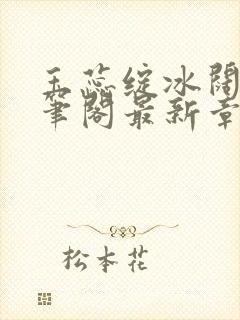 玉蕊绽冰阔
笔阁最新章
松本花